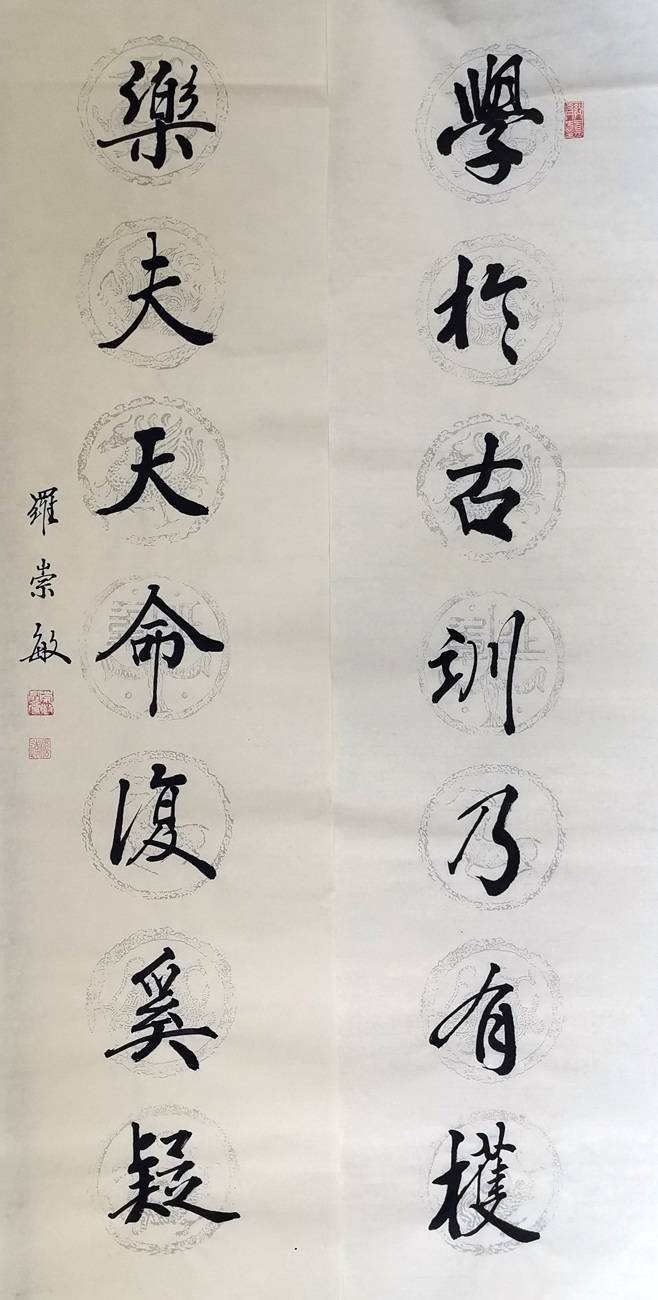 學於古訓乃有獲
樂夫天命復奚疑
羅崇敏